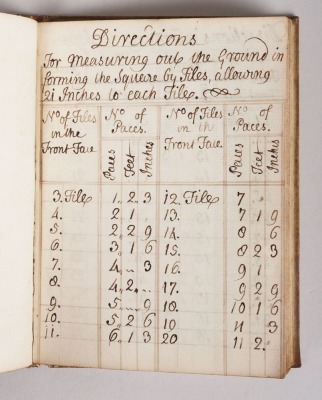 Directions
For Measuring out the Ground in
forming the Square by Files, allowing
21 Inches to each File.
No of Files in the Front Face No of Paces. No of Files in the Front Face No of Paces.
Paces Feet Inches Paces Feet Inches
3. File 1 .. 2 .. 3 12. File 7 " "
4. 2 .. 1 " 13. 7 1 9
5. 2 .. 2 9 14. 8 " 6
6. 3 .. 1 6 15. 8 2 3
7. 4 .. .. 3 16. 9 1 "
8. 4 .. 2 .. .. 17. 9 2 9
9. 5 .. .. 9 18. 10 1 6
10. 5 .. 2 6 19 11 " 3
11. 6 .. 1 3 20 11 2 "